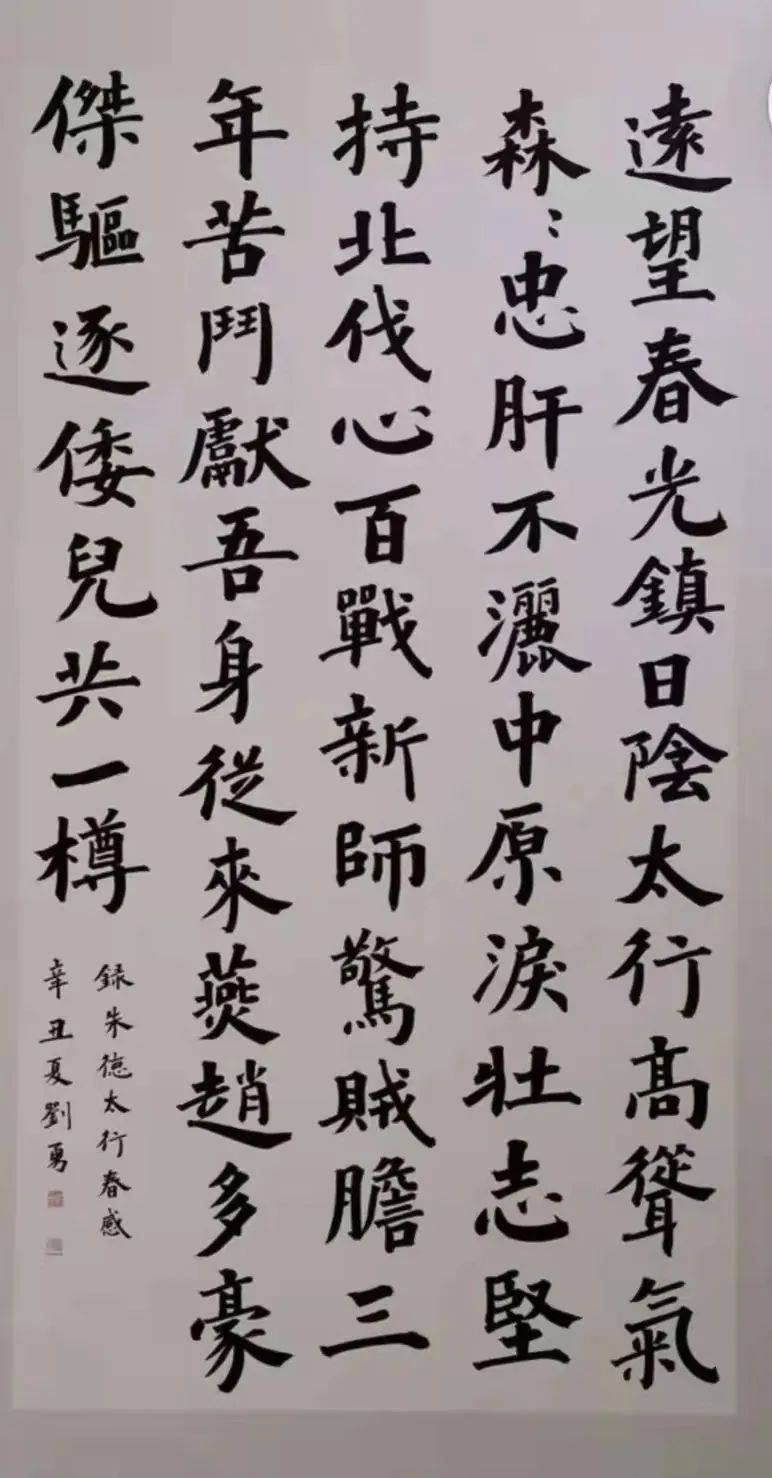 遠望春光鎮日陰太行高聳氣
森〻忠肝不灑中原淚壯志堅
持北伐心百戰新師驚賊膽三
年苦鬥獻吾身從來燕趙多豪
傑驅逐倭兒共一樽
録朱德太行春感
辛丑夏劉勇